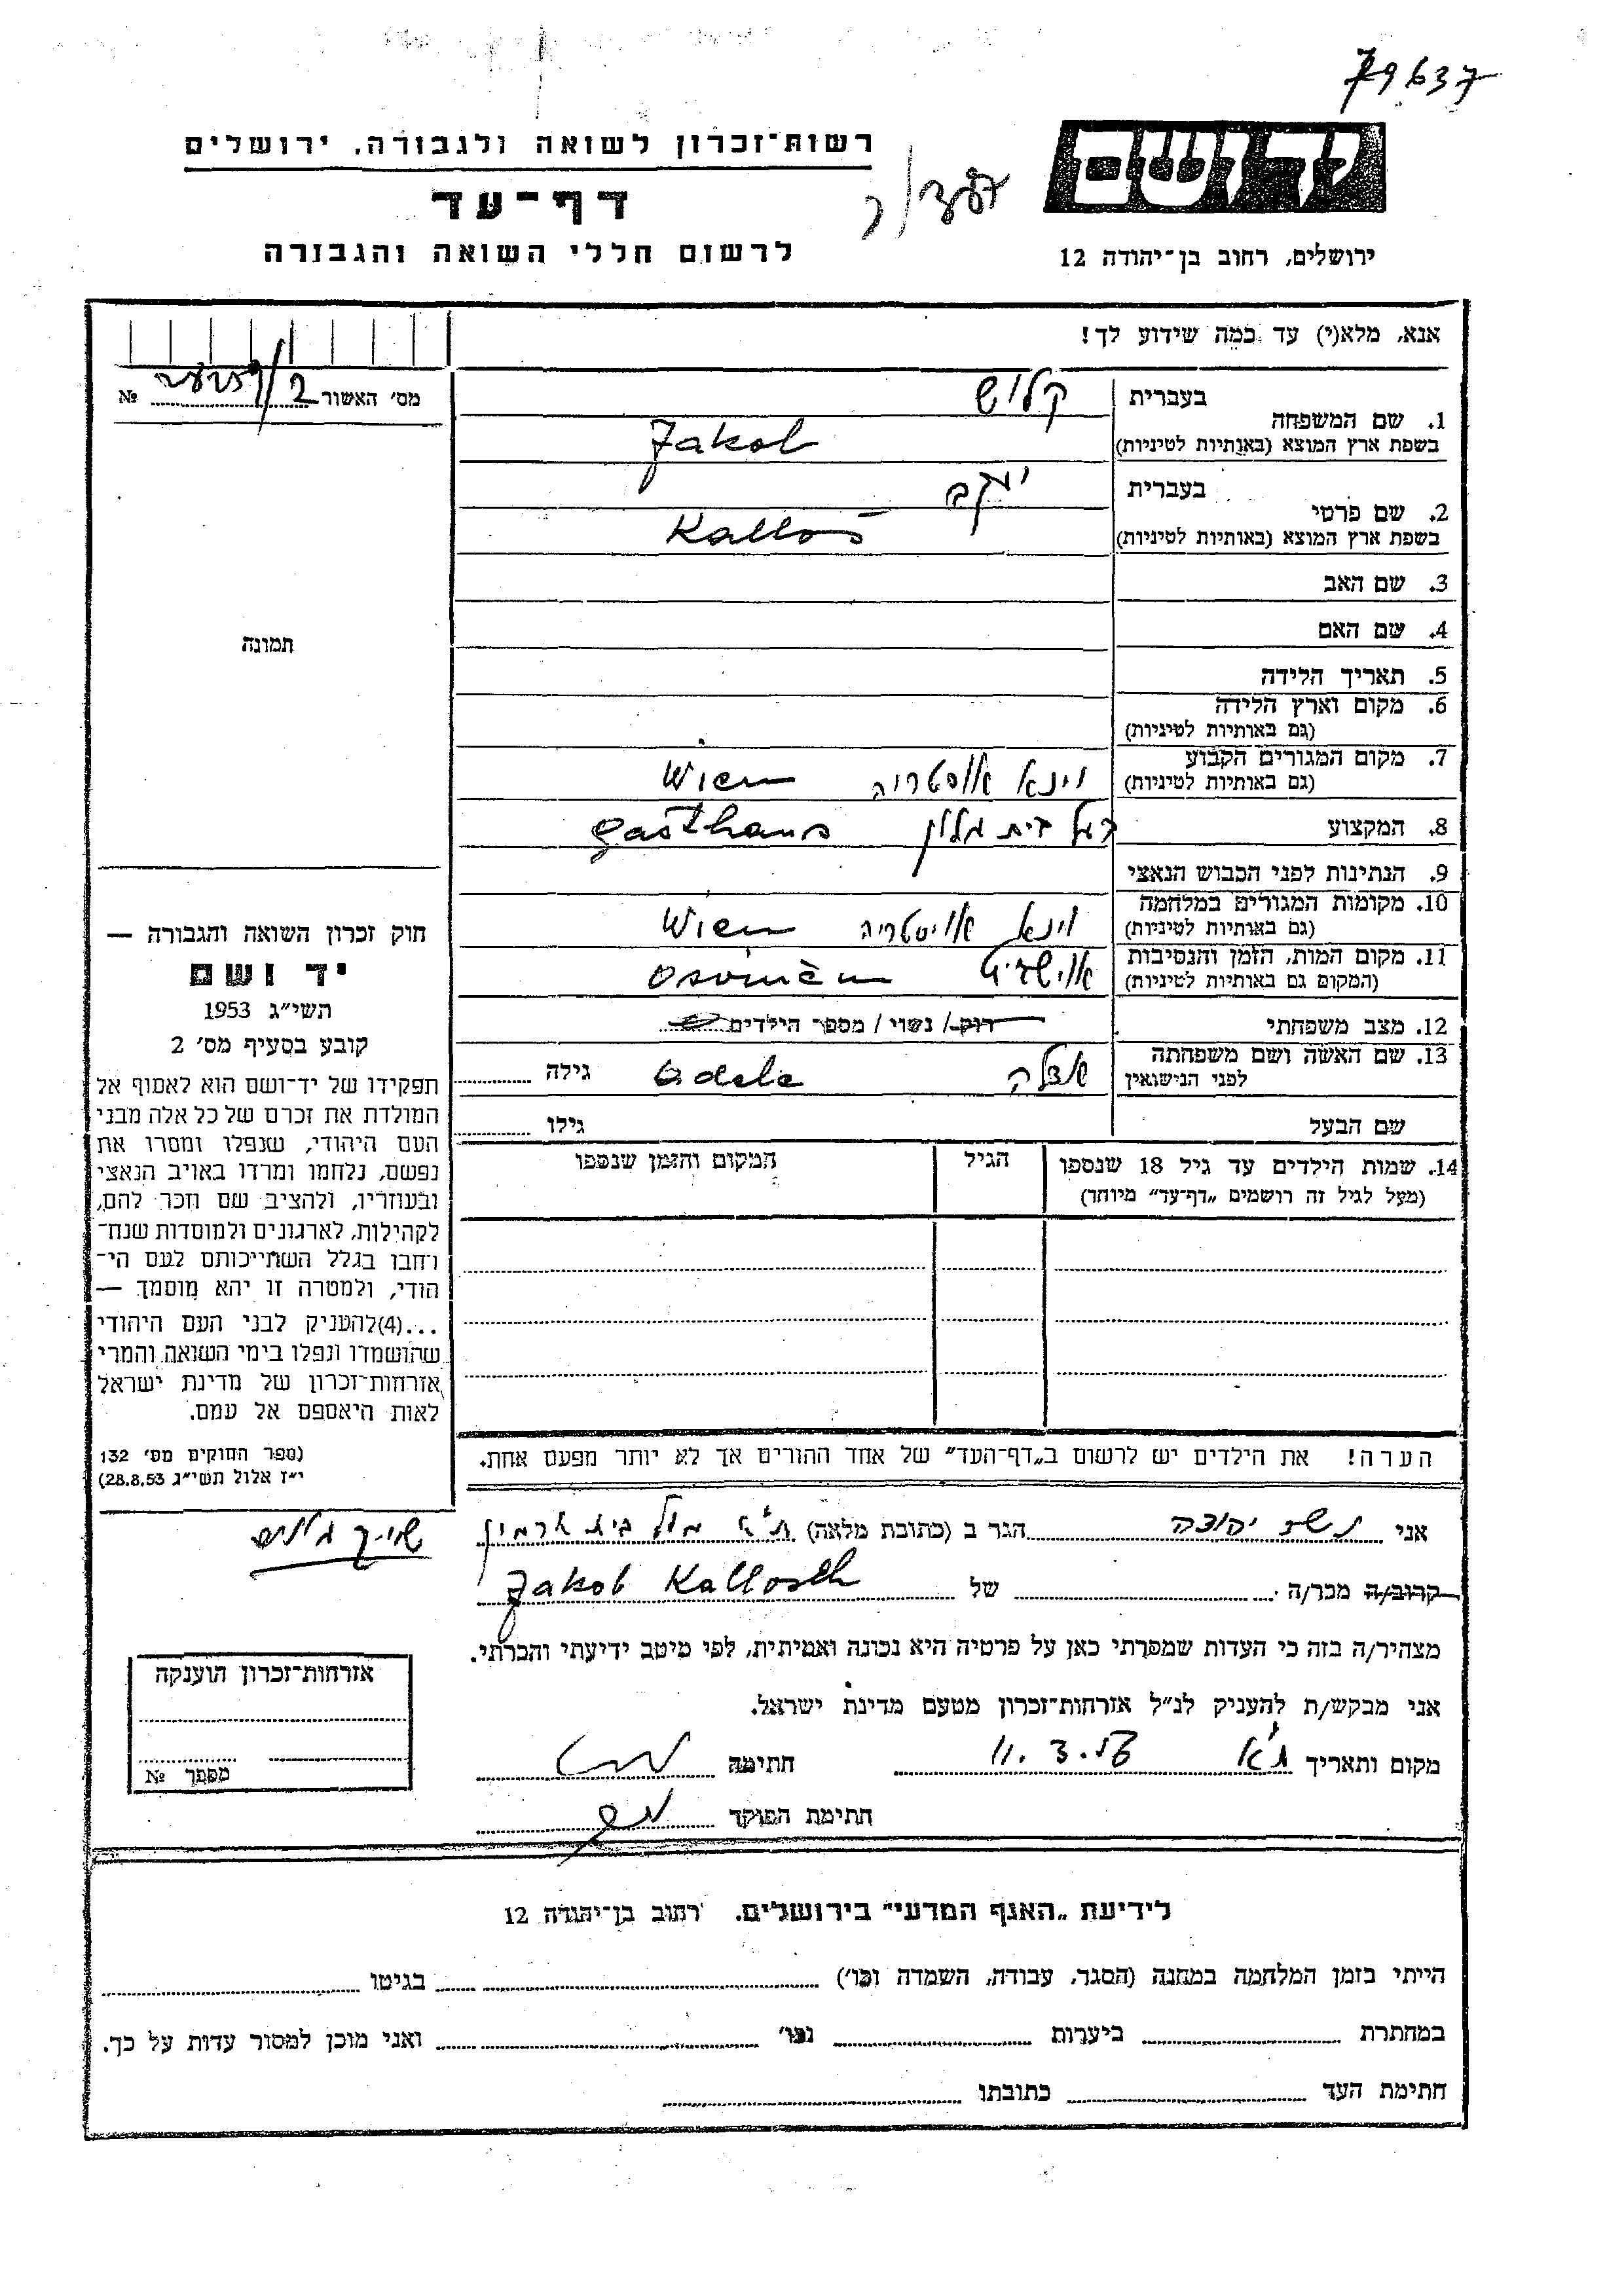 79637
רשות־זכרון לשואה ולגבורה, ירושלים
דף־עד
לרשום חללי השואה והגבורה
יד ושם
ירושלים, רחוב בן־יהודה 12
אנא, מלא(י) עד כמה שידוע לך!
מס׳ האשור №
תמונה
בעברית קלוש
1. שם המשפחה
בשפת ארץ המוצא (באותיות לטיניות) Jakob
בעברית יעקב
2. שם פרטי
בשפת ארץ המוצא (באותיות לטיניות) Kallos
3. שם האב
4. שם האם
5. תאריך הלידה
6. מקום וארץ הלידה
(גם באותיות לטיניות)
7. מקום המגורים הקבוע
(גם באותיות לטיניות) וינא אוסטריה Wien
8. המקצוע בעל בית מלון gasthaus
9. הנתינות לפני הכבוש הנאצי
10. מקומות המגורים במלחמה
(גם באותיות לטיניות) וינא אויסטריה Wien
11. מקום המות, הזמן והנסיבות
(המקום גם באותיות לטיניות)
12. מצב משפחתי רוק/ נשוי / מספר הילדים
13. שם האשה ושם משפחתה
לפני הנישואין אדלה Adele גילה
שם הבעל גילו
14. שמות הילדים עד גיל 18 שנספו הגיל המקום והזמן שנספו
(מעל לגיל זה רושמים „דף־עד” מיוחד)
הערה! את הילדים יש לרשום ב„דף־העד” של אחד ההורים אך לא יותר מפעם אחת.
חוק זכרון השואה והגבורה —
יד ושם
תשי״ג 1953
קובע בסעיף מס׳ 2
תפקידו של יד־ושם הוא לאסוף אל
המולדת את זכרם של כל אלה מבני
העם היהודי, שנפלו ומסרו את
נפשם, נלחמו ומרדו באויב הנאצי
ובעוזריו, ולהציב שם וזכר להם,
לקהילות, לארגונים ולמוסדות שנח־
רחבו בגלל השתייכותם לעם הי־
הודי, ולמטרה זו יהא מוסמך —
...(4)להעניק לבני העם היהודי
שהושמדו ונפלו בימי השואה והמרי
אזרחות־זכרון של מדינת ישראל
לאות היאספם אל עמם.
(ספר החוקים מס׳ 132
י״ז אלול תשי״ג 28.8.53)
אני יהודה הגר ב (כתובת מלאה) ת״א מול בית
קרוב/ה מכר/ה של Jakob Kallosch
מצהיר/ה בזה כי העדות שמסרתי כאן על פרטיה היא נכונה ואמיתית, לפי מיטב ידיעתי והכרתי.
אני מבקש/ת להעניק לנ״ל אזרחות־זכרון מטעם מדינת ישראל.
מקום ותאריך ת״א 11.3. חתימה
חתימת הפוקד
אזרחות־זכרון הוענקה
מספר №
לידיעת „האגף המדעי” בירושלים. רחוב בן־יהודה 12
הייתי בזמן המלחמה במחנה (הסגר, עבודה, השמדה וכו׳) בגיטו
במחתרת ביערות וכו׳ ואני מוכן למסור עדות על כך.
חתימת העד כתובתו